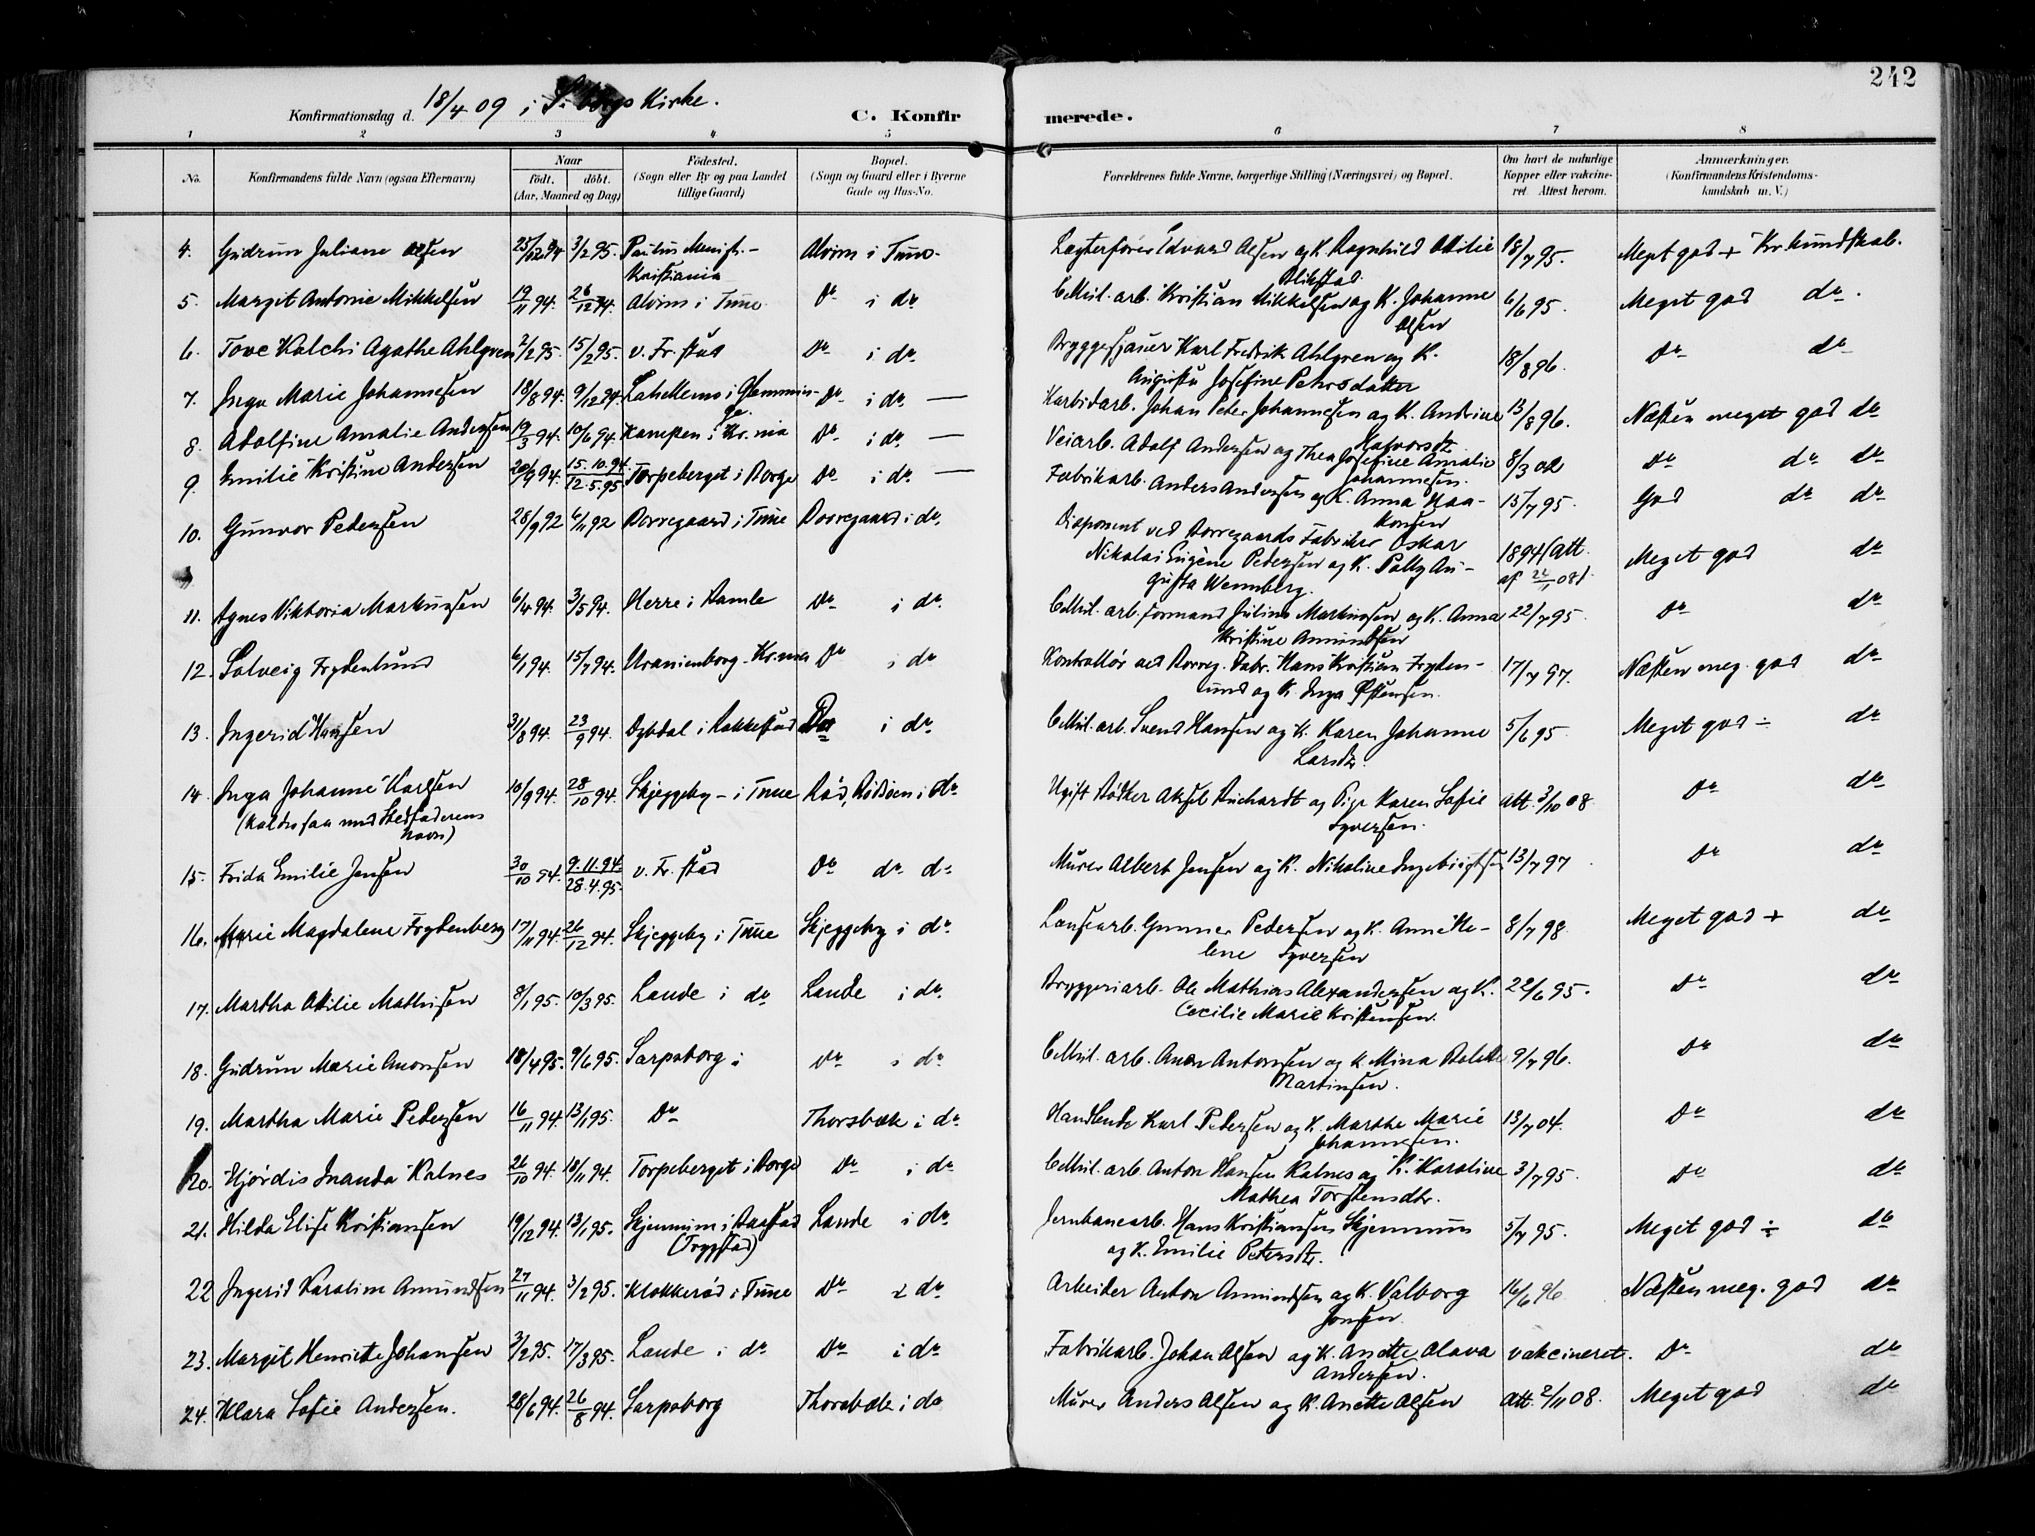 242
Konfirmationsdag d. 18/4 09 i S. borgs Kirke.
C. Konfirmerede.
1 2 3 4 5 6 7 8
No. Konfirmandens fulde Navn (ogsaa Efternavn) Naar født, døbt. (Aar, Maaned og Dag) Fødested. (Sogn eller By og paa Landet tillige Gaard) Bopæl. (Sogn og Gaard eller i Byerne Gade og Hus-No. Forældrenes fulde Navne, borgerlige Stilling (Næringsvei) og Bopæl. Om havt de naturlige Kopper eller vakcineret. Attest herom. Anmærkninger. (Konfirmandens Kristendomskundskab m. V.)
4. Gudrun Juliane Olsen 25/12 94 3/2 95. Paulus Menigh.- Kristiania Alvim i Tune. Lægterfører Edvard Olsen og K. Ragnhild Otilie Blikstad 18/7 95. Meget god + Kr. kundskab.
5. Margit Antonie Mikkelsen 19/11 94. 26/12 94. Alvim i Tune Do i do. Cellul. arb. Kristian Mikkelsen og K. Johanne Olsen 6/6 95. Meget god do.
6. Tove Kalchi Agathe Ahlgren 2/2 95. 15/2 95. v. Fr.stad Do i do. Bryggesjauer Karl Fredrik Ahlgren og K. Augusta Josefine Pehrsdatter 18/8 96. Do do
7. Inga Marie Johannesen 18/8 94. 9/12 94. i Glemminge Do i do. — Karbidarb. Johan Peter Johannesen og K. Andrine Halvorsdt. 13/8 96. Næsten meget god do
8. Adolfine Amalie Andersen 19/3 94. 10/6 94. Kampen i Kr.nia Do. i do. — Veiarb. Adolf Andersen og Thea Josefine Amalie Johannesen. 8/3 02 Do do do
9. Emilie Kristine Andersen 20/9 94. 15.10.94. 12.5.95 Torpeberget i Borge Do i do. — Fabrikarb. Anders Andersen og K. Anna Haakonsen 15/7 95. God do do
10. Gunvor Pedersen 28/9 92 6/11 92 Borregaard i Tune Borregaard i do. Disponent ved Borregaards Fabriker Oskar Nikolai Eugène Pedersen og K. Polly Augusta Wennberg. 1894 (Att. af 22/1 08). Meget god do
11. Agnes Viktoria Markussen 6/4 94. 3/5 94. Herre i Bamle Do i do. Cellul. arb. formand Julius Markussen og K. Anna Kristine Amundsen 22/7 95. Do do
12. Solveig Frydenlund 6/1 94. 15/7 94. Uranienborg - Kr.nia Do i do Kontrollør ved Borreg. Fabr. Hans Kristian Frydenlund og K. Inga Østensen. 17/7 97. Næsten meg. god do
13. Ingerid Hansen 31/8 94. 23/9 94. Dybdal i Rakkestad Do i do. Cellul. arb. Svend Hansen og K. Karen Johanne Larsdt. 5/6 95. Meget god ÷ do
14. Inga Johanne Karlsen (Kaldes saa med Stedfaderens Navn) 10/9 94. 28/10 94. Skjeggeby - i Tune Rød, Rødsven i do Ugift Bødker Aksel Richardt og Pige Karen Sofie Syversen. Att. 3/10 08. Do do
15. Frida Emilie Jensen 30/10 94. 9.11.94. 28.4.95. v. Fr.stad Do do. do Murer Albert Jensen og K. Nikoline Ingebrigtsen 13/7 97 Do do
16. Marie Magdalene Frydenberg 17/11 94. 26/12 94. Skjeggeby i Tune Skjeggeby i do. Lensearb. Gunner Pedersen og K. Anne Helene Syversen 8/7 98. Meget god + do
17. Martha Otilie Mathisen 8/1 95. 10/3 95. Lande i do Lande i do. Bryggeriarb. Ole Mathias Alexandersen og K. Cecilie Marie Kristensen. 22/6 95. Do do
18. Gudrun Marie Anonsen 18/4 95. 9/6 95. Sarpsborg i Do i do. Cellul. arb. Anton Antonsen og K. Mina Bolette Martinsen. 9/7 96. Do do
19. Martha Marie Pedersen 16/11 94. 13/1 95. Do Thorsbæk i do. Handlende Karl Pedersen og K. Marthe Marie Johannesen. 13/7 04. Do do
20. Hjørdis Inanda Kalnes 26/10 94. 18/11 94. Torpeberget i Borge Do i do Cellul. arb. Anton Hansen Kalnes og K. Karoline Mathea Torstensdtr. 3/7 95. Do do
21. Hilda Elise Kristiansen 19/12 94. 13/1 95. Skjennum i Baastad (Trygstad) Lande i do. Jernbanearb. Hans Kristiansen Skjennum og K. Emilie Petersdt. 5/7 95. Meget god ÷ do
22 Ingerid Karoline Amundsen 27/11 94. 3/2 95. Klokkerød i Tune Do i do Arbeider Anton Amundsen og K. Valborg Jonsen. 16/6 96 Næsten meg. god do
23. Margit Henriette Johansen 3/2 95. 17/3 95. Lande i do Do i do Fabrikarb. Johan Olsen og K. Anette Olava Andersen. vakcineret. Do do
24. Klara Sofie Andersen. 28/6 94. 26/8 94. Sarpsborg Thorsbæk i do Murer Anders Olsen og K. Anette Olsen Att. 2/11 08. Meget god do